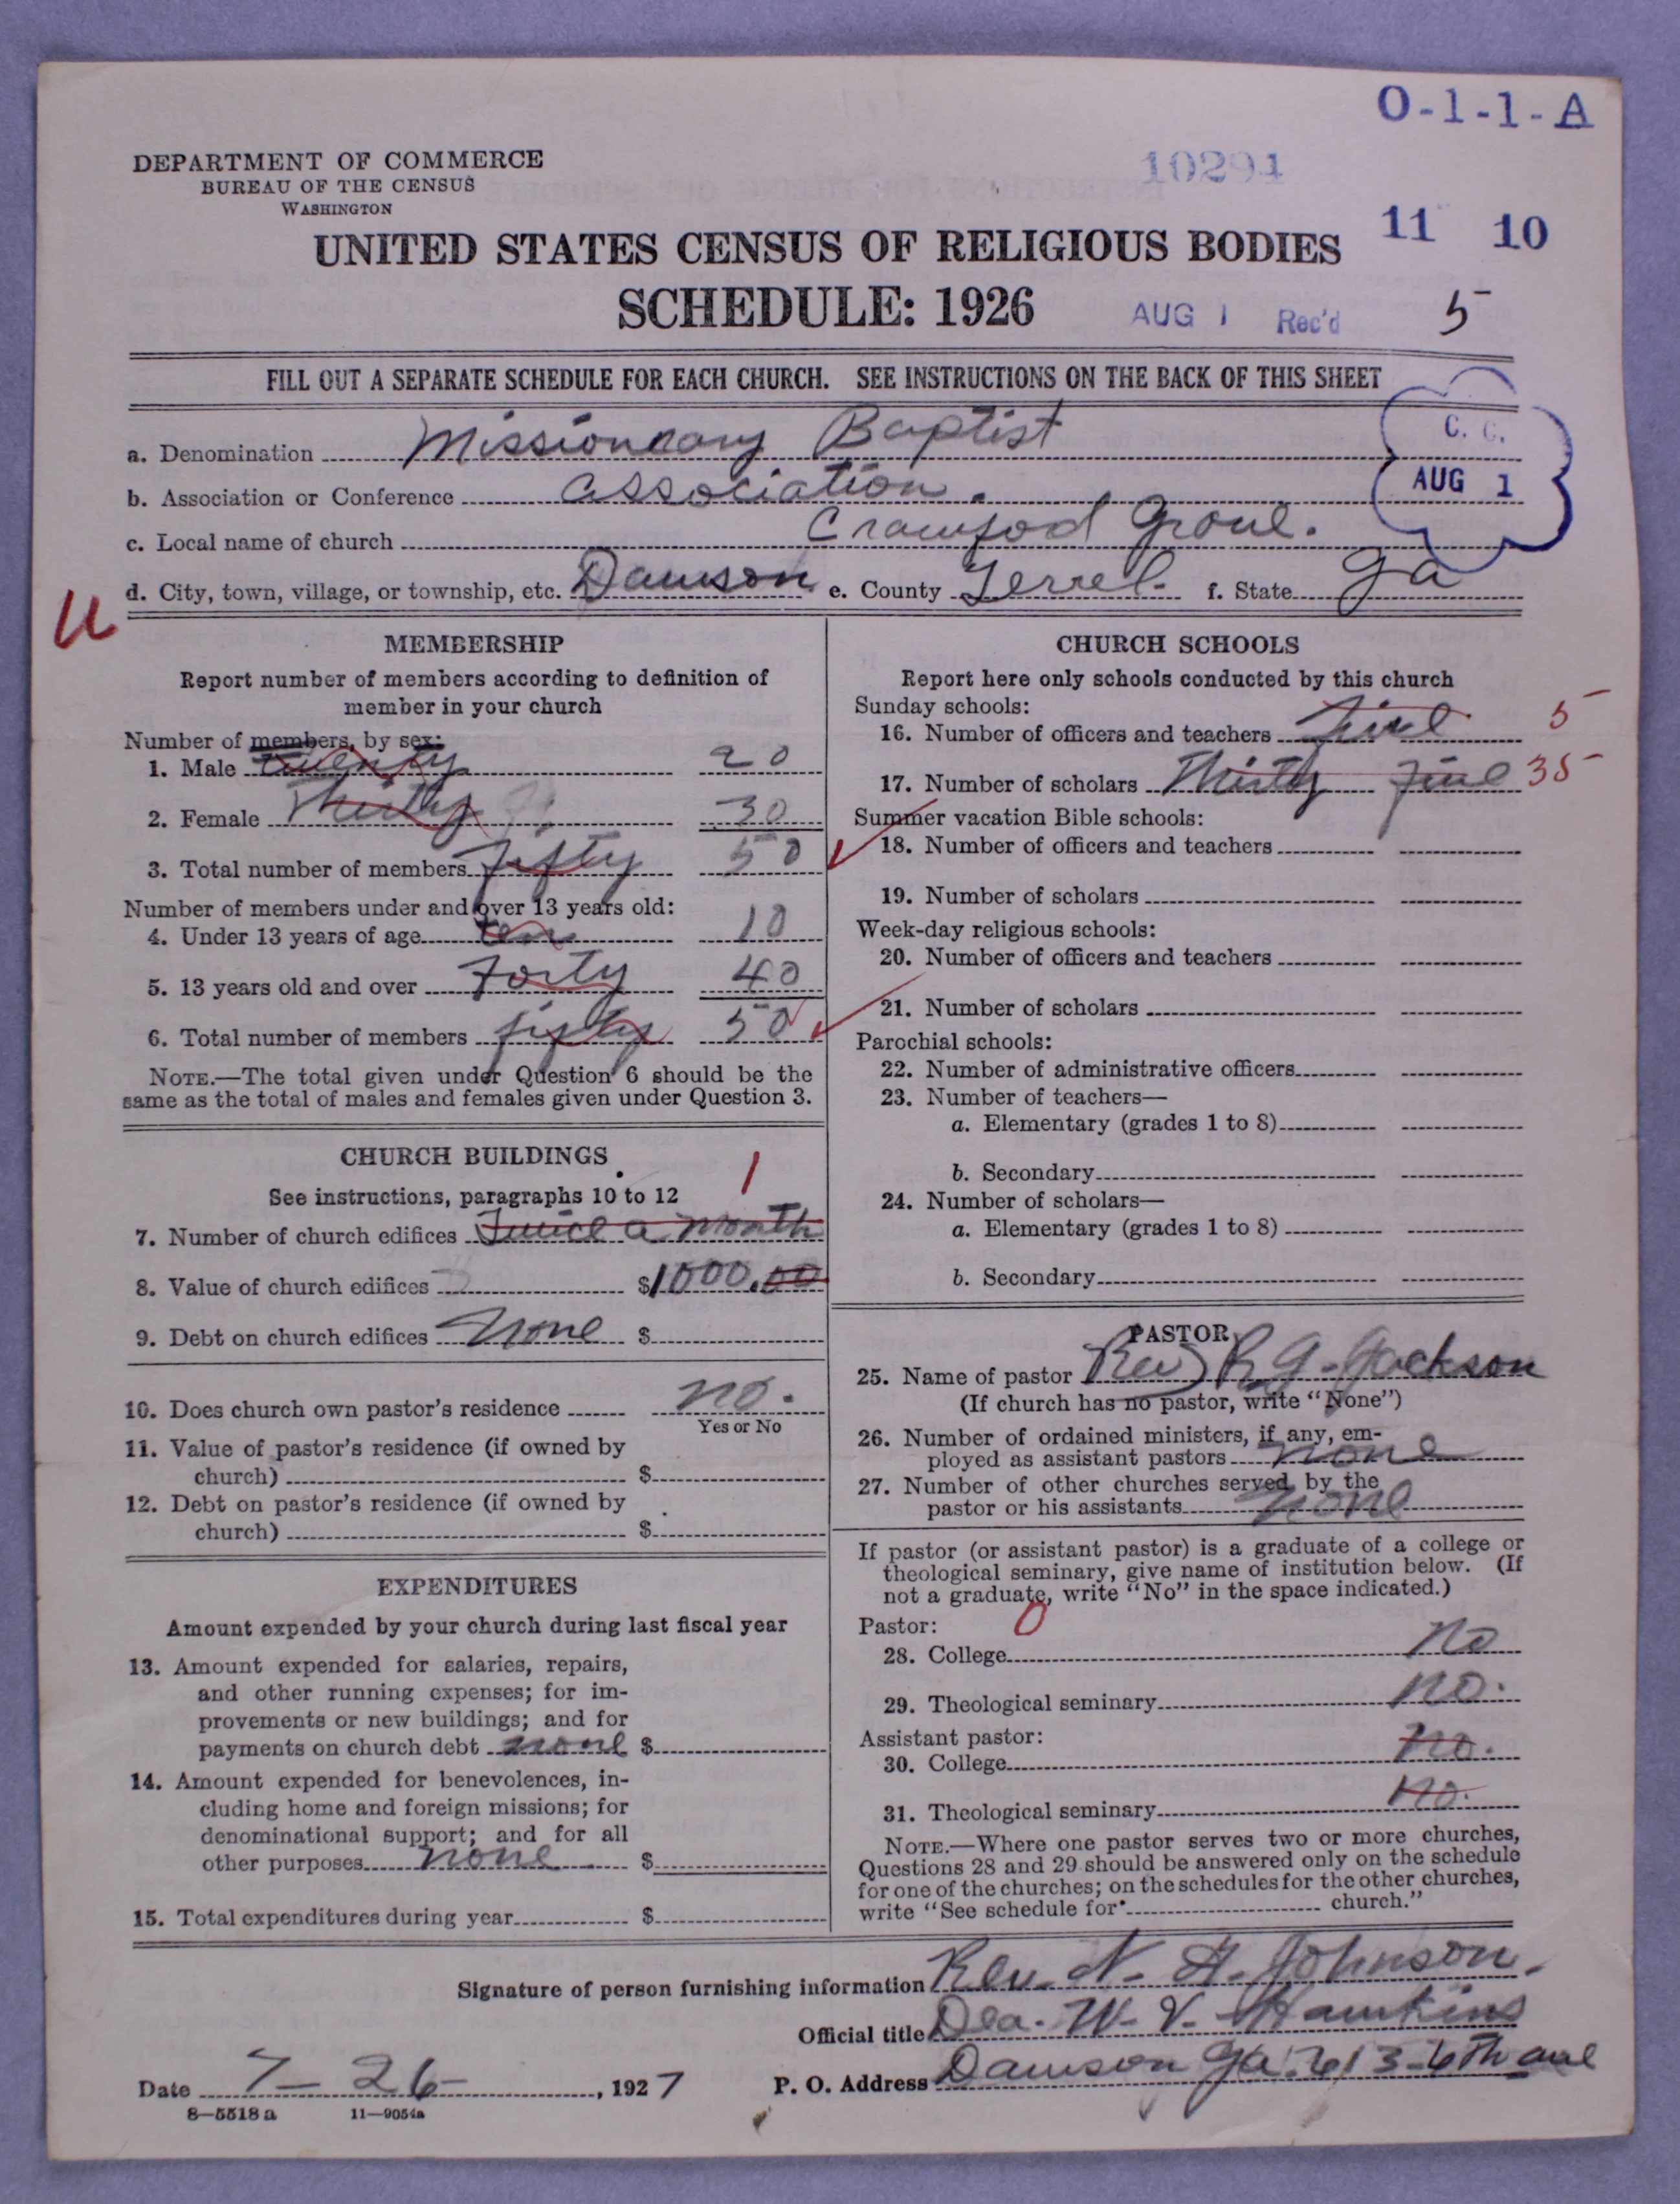 O-1-1-A
DEPARTMENT OF COMMERCE
BUREAU OF THE CENSUS
WASHINGTON
10294
11 10
UNITED STATES CENSUS OF RELIGIOUS BODIES
SCHEDULE: 1926
AUG 1 Rec'd
5
FILL OUT A SEPARATE SCHEDULE FOR EACH CHURCH. SEE INSTRUCTIONS ON THE BACK OF THIS SHEET
C. C.
AUG 1
a. Denomination Missionary Baptist
b. Association or Conference Association.
c. Local name of church Crawfod Grove.
d. City, town, village, or township, etc. Dawson e. County Terrel. f. State Ga
U
MEMBERSHIP
Report number of members according to definition of
member in your church
Number of members, by sex:
1. Male Twenty 20
2. Female Thirty 30
3. Total number of members fifty 50
Number of members under and over 13 years old:
4. Under 13 years of age ten 10
5. 13 years old and over Forty 40
6. Total number of members fifty 50
NOTE.—The total given under Question 6 should be the
same as the total of males and females given under Question 3.
CHURCH BUILDINGS
See instructions, paragraphs 10 to 12
1
7. Number of church edifices Twice a month
8. Value of church edifices $1000.00
9. Debt on church edifices None $
10. Does church own pastor's residence no.
Yes or No
11. Value of pastor's residence (if owned by
church) $
12. Debt on pastor's residence (if owned by
church) $
EXPENDITURES
Amount expended by your church during last fiscal year
13. Amount expended for salaries, repairs,
and other running expenses; for im-
provements or new buildings; and for
payments on church debt none $
14. Amount expended for benevolences, in-
cluding home and foreign missions; for
denominational support; and for all
other purposes none $
15. Total expenditures during year $
CHURCH SCHOOLS
Report here only schools conducted by this church
Sunday schools:
16. Number of officers and teachers five 5
17. Number of scholars Thirty five 35
Summer vacation Bible schools:
18. Number of officers and teachers
19. Number of scholars
Week-day religious schools:
20. Number of officers and teachers
21. Number of scholars
Parochial schools:
22. Number of administrative officers
23. Number of teachers—
a. Elementary (grades 1 to 8)
b. Secondary
24. Number of scholars—
a. Elementary (grades 1 to 8)
b. Secondary
PASTOR
25. Name of pastor Rev R. G. Jackson
(If church has no pastor, write "None")
26. Number of ordained ministers, if any, em-
ployed as assistant pastors none
27. Number of other churches served by the
pastor or his assistants none
If pastor (or assistant pastor) is a graduate of a college or
theological seminary, give name of institution below. (If
not a graduate, write "No" in the space indicated.)
Pastor: 0
28. College no
29. Theological seminary no.
Assistant pastor:
30. College no.
31. Theological seminary no.
NOTE.—Where one pastor serves two or more churches,
Questions 28 and 29 should be answered only on the schedule
for one of the churches; on the schedules for the other churches,
write "See schedule for church."
Signature of person furnishing information Rev. N. H. Johnson.
Official title Dea. W. V. Hawkins
Date 7-26-, 1927 P. O. Address Dawson Ga. 613-6th ave
8—5518 a 11—9054a